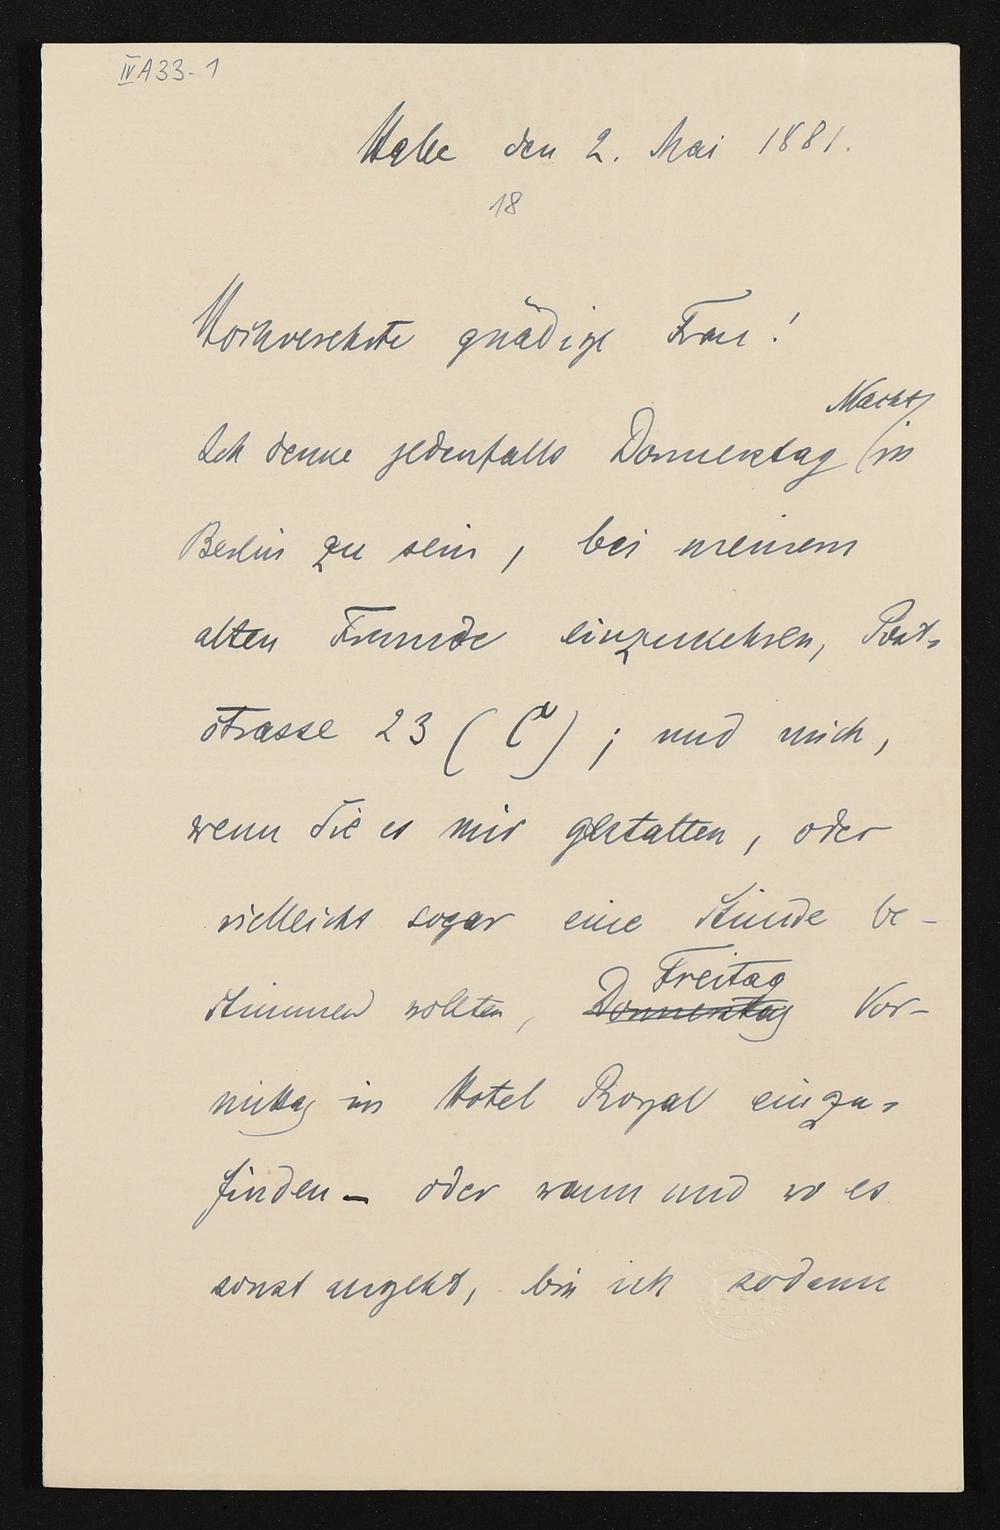 IV A 33-1
Halle den 2. Mai 1881.
18
Hochverehrte gnädige Frau!
Nacht
Ich denke jedenfalls Donnerstag in
Berlin zu sein, bei meinem
alten Freunde einzukehren, Post-
strasse 23 ( ) ; und mich,
wenn Sie es mir gestatten, oder
vielleicht sogar eine Stunde be-
stimmen wollten,
Freitag
Donnerstag Vor-
mittag im Hotel Royal einzu-
finden – oder wann und wo es
sonst angeht, bin ich sodann